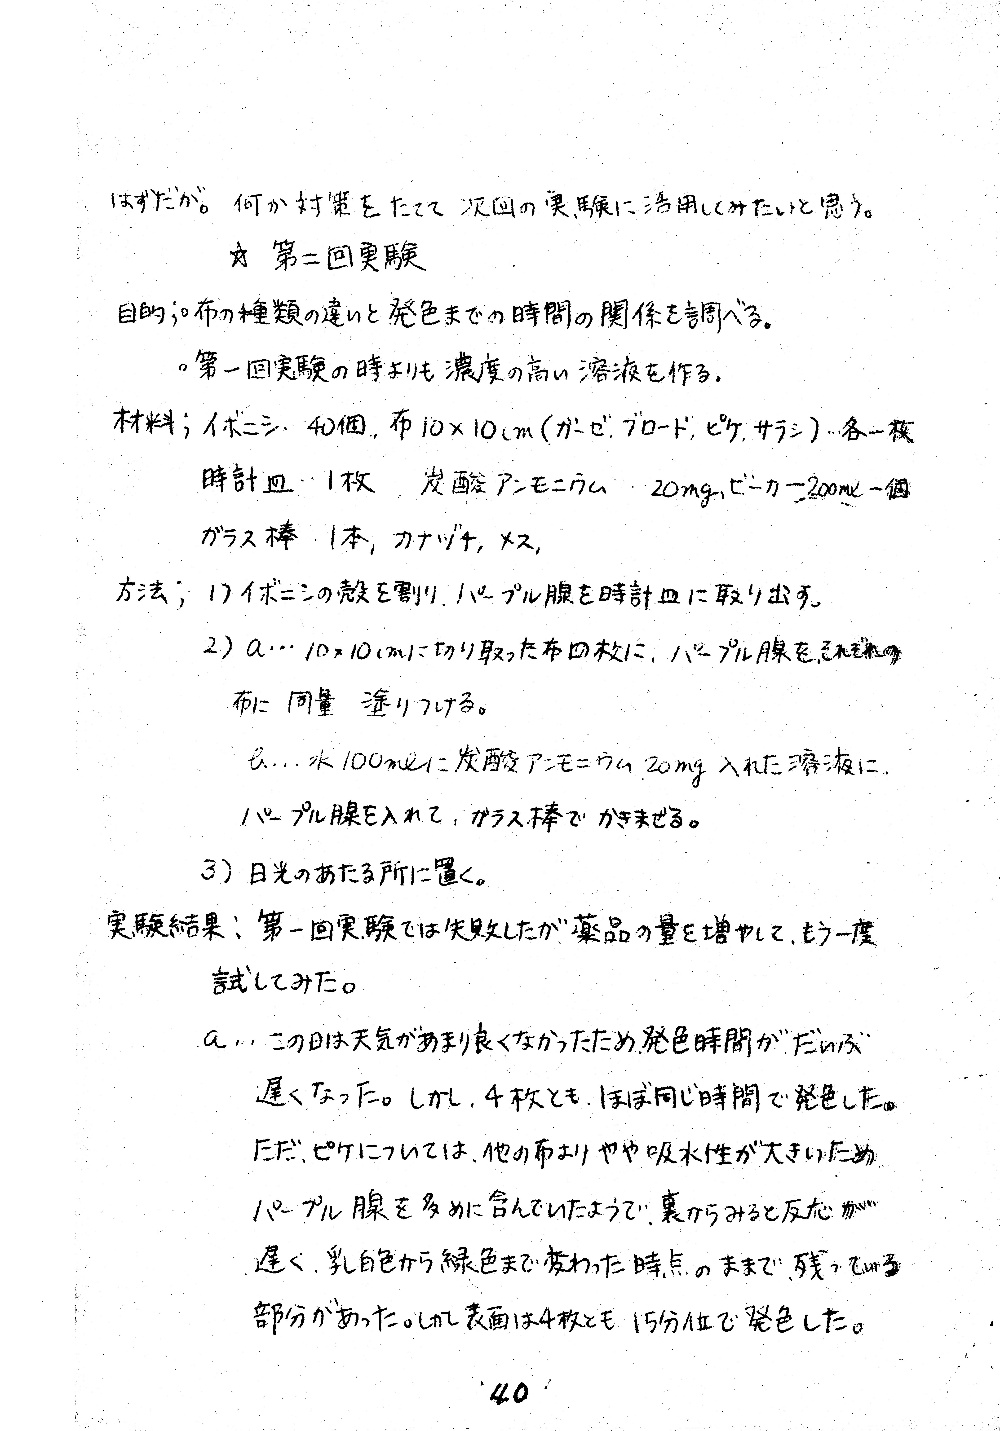 はずだが。何か対策をたてて次回の実験に活用してみたいと思う。
☆ 第二回実験
目的;。布の種類の違いと発色までの時間の関係を調べる。
。第一回実験の時よりも濃度の高い溶液を作る。
材料; イボニシ・40個, 布10×10cm(ガーゼ,ブロード,ピケ,サラシ)‥各一枚
時計皿‥1枚 炭酸アンモニウム‥20mg,ビーカー200ml一個
ガラス棒‥1本, カナヅチ, メス,
方法; 1)イボニシの殻を割り,パープル腺を時計皿に取り出す。
2) a… 10×10cmに切り取った布四枚に,パープル腺を,それぞれの
布に 同量 塗りつける。
b… 水100mlに炭酸アンモニウム20mg入れた溶液に,
パープル腺を入れて,ガラス棒でかきませる。
3) 日光のあたる所に置く。
実験結果; 第一回実験では失敗したが,薬品の量を増やして,もう一度
試してみた。
a‥ この日は天気があまり良くなかったため,発色時間がだいぶ
遅くなった。しかし,4枚とも,ほぼ同じ時間で発色した。
ただ,ピケについては,他の布よりやや吸水性が大きいため
パープル腺を多めに含んでいたようで,裏からみると反応が
遅く,乳白色から緑色まで変わった時点のままで,残っている
部分があった。しかし表面は4枚とも15分位で発色した。
40